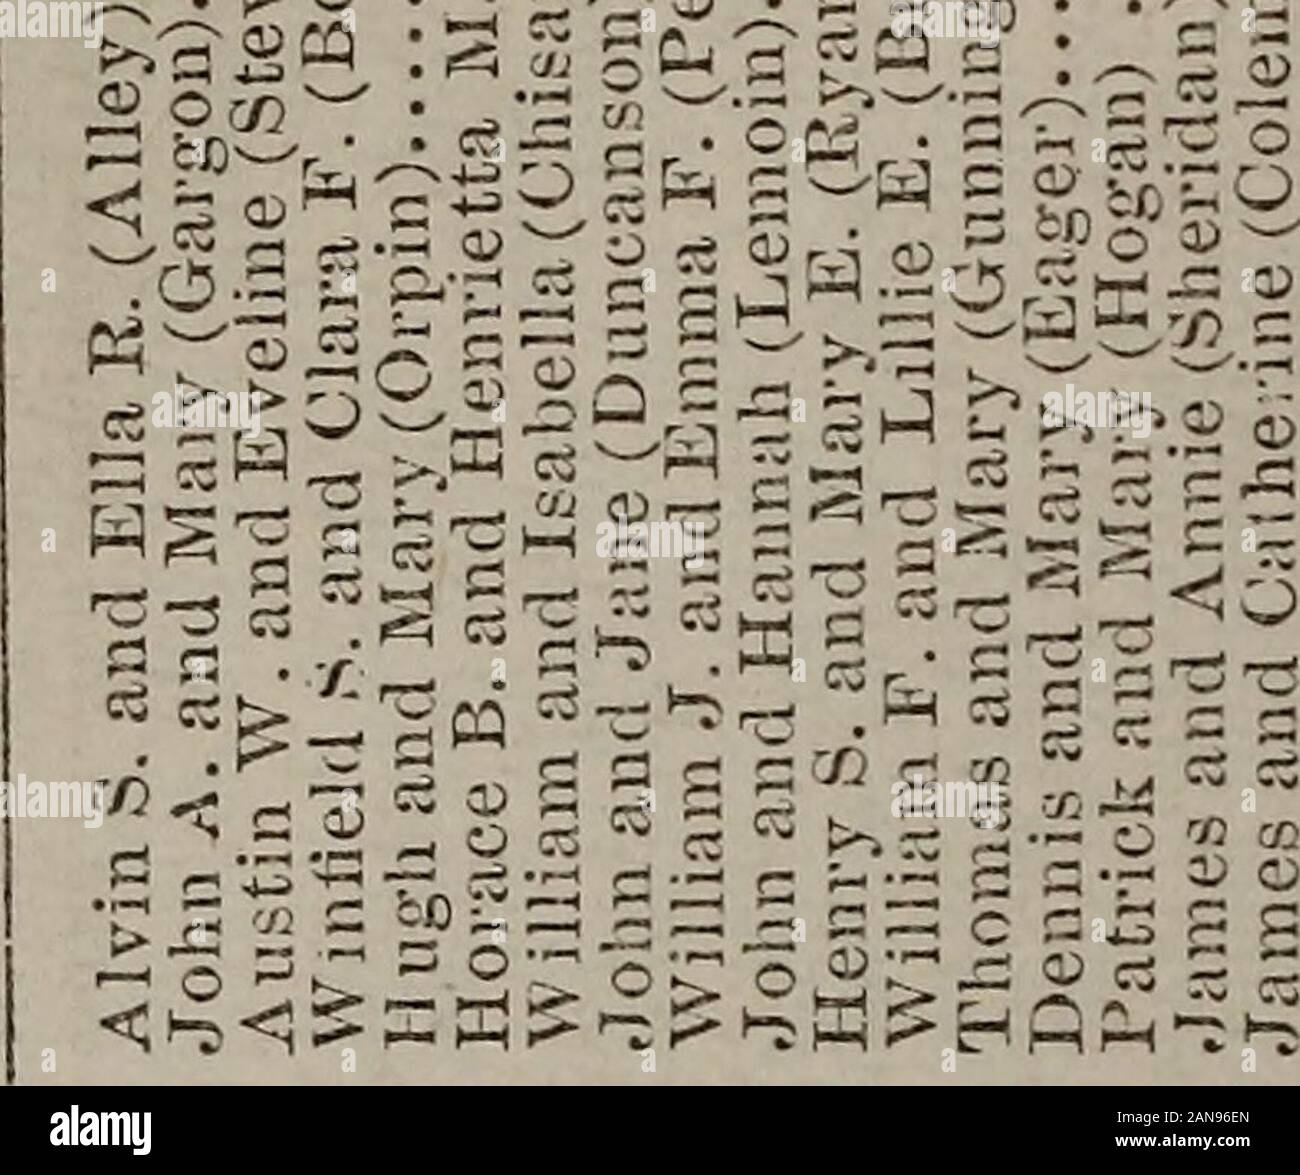 Alvin S. and Ella R. (Alley)
John A. and Mary (Gargon).
Austin W. and Eveline (Stev
Winfield S. and Clara F. (Bo
Hugh and Mary (Orpin)....
Horace B. and Henrietta M.
William and Isabella (Chisa
John and Jane (Duncanson)
William J. and Emma F. (Pe
John and Hannah (Lemoin).
Henry S. and Mary E. (Ryan
William F. and Lillie E. (Ba
Thomas and Mary (Gunning
Dennis and Mary (Eager)...
Patrick and Mary (Hogan) .
James and Annie (Sheridan)
James and Catherine (Colem
alamy
Image ID: 2AN96EN
www.alamy.com